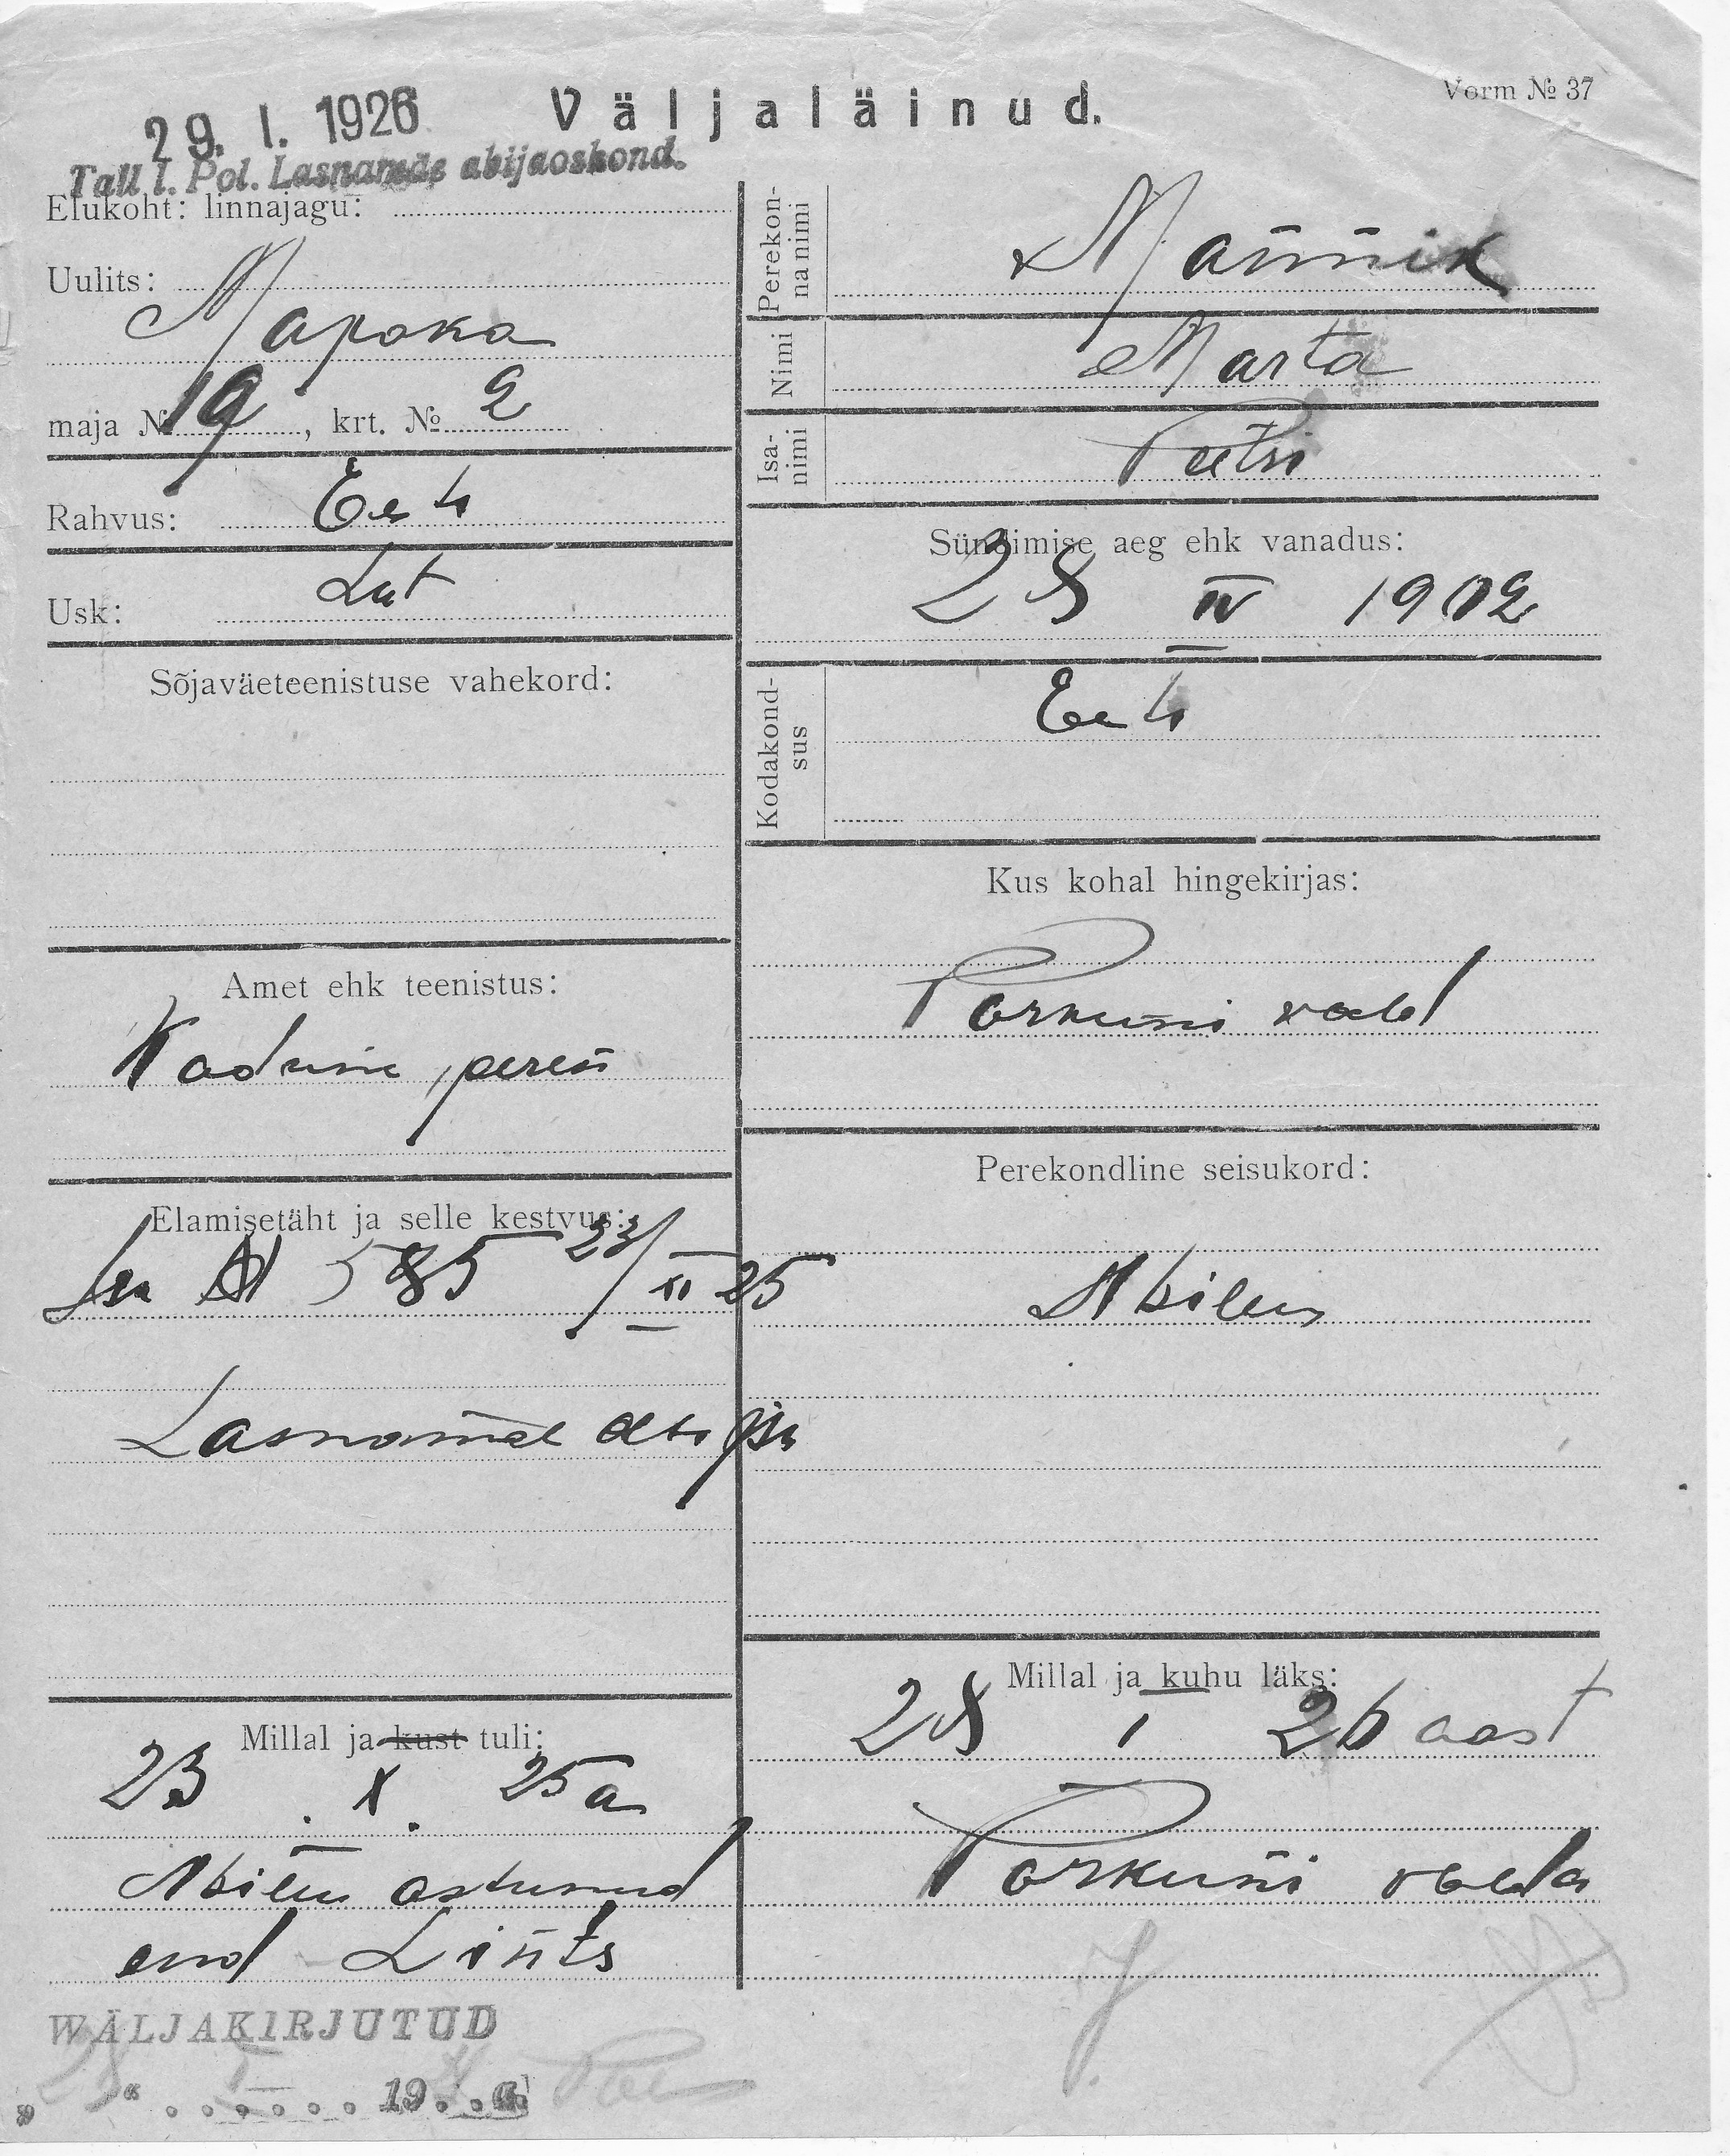 Vorm № 37
29. I. 1926
Väljaläinud.
Tall I. Pol. Lasnamäe abijaoskond.
Elukoht: linnajagu:
Uulits:
Mapoka
maja № 19, krt. № 2
Rahvus: Eesti
Usk: Lut
Sõjaväeteenistuse vahekord:
Amet ehk teenistus:
Kodune, peren
Elamisetäht ja selle kestvus:
№ 585 23/XI 25
Lasnamäe abi jsk
Millal ja kust tuli:
23 . X . 25 a
Abielu astunud
end Lints
WÄLJAKIRJUTUD
" " . . . . . . 19 . . a.
Perekonna nimi
Männik
Nimi
Marta
Isanimi
Peetri
Sündimise aeg ehk vanadus:
28 IV 1902
Kodakondsus
Eesti
Kus kohal hingekirjas:
Porkuni vald
Perekondline seisukord:
Abielus
Millal ja kuhu läks:
28 I 26 aast
Porkuni valda